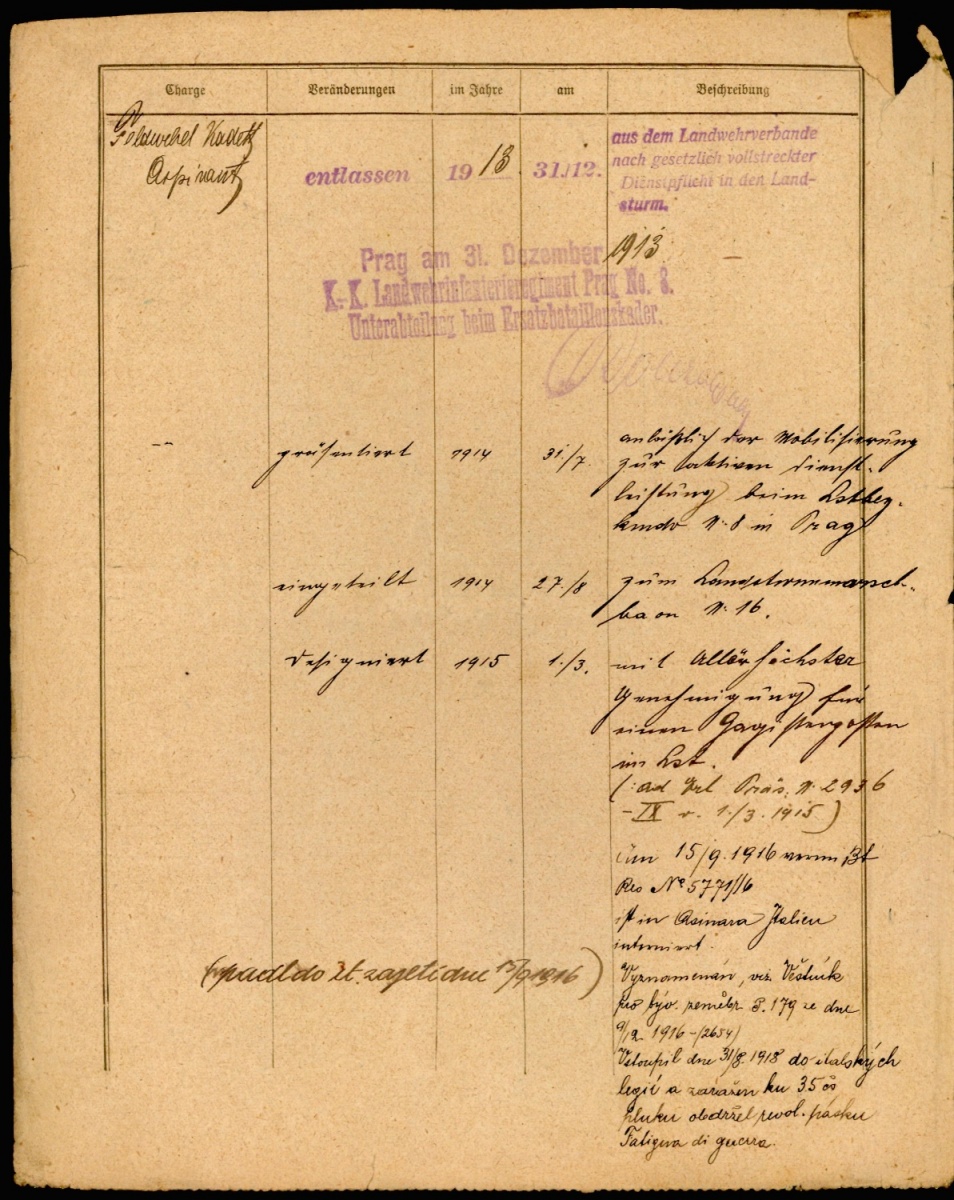 Charge Veränderungen im Jahre am Beschreibung
Feldwebel Kadett
Aspirant
entlassen 1913. 31./12. aus dem Landwehrverbande
nach gesetzlich vollstreckter
Dienstpflicht in den Land-
sturm.
Prag am 31. Dezember 1913
K.-K. Landwehrinfanterieregiment Prag No. 8.
Unterabteilung beim Ersatzbataillonskader.
präsentiert 1914 31./7. anläßlich der Mobilisierung
zur aktiven Dienst-
leistung beim Lstbez.-
kmdo N: 8 in Prag
eingeteilt 1914 27./8 zum Landsturmmarsch-
baon N: 16.
Designiert 1915 1./3. mit Allerhöchster
Genehmigung für
einen Gagistenposten
im Lst.
(: ad Erl Präs: N: 2936
-IX v. 1./3. 1915)
Am 15/9. 1916
Res No 5771/16
ist in Asinara Italien
interniert.
(upadl do it. zajetí dne 15/9 1916)
Vyznamenán, viz. Věstník
pro býv. zeměbr. č. 179 ze dne
9/12. 1916 - (2654)
Vstoupil dne 31/8. 1918 do italských
legií a zařažen ku 35 čs
pluku obdržel revol. pásku
Fatigua di guerra.